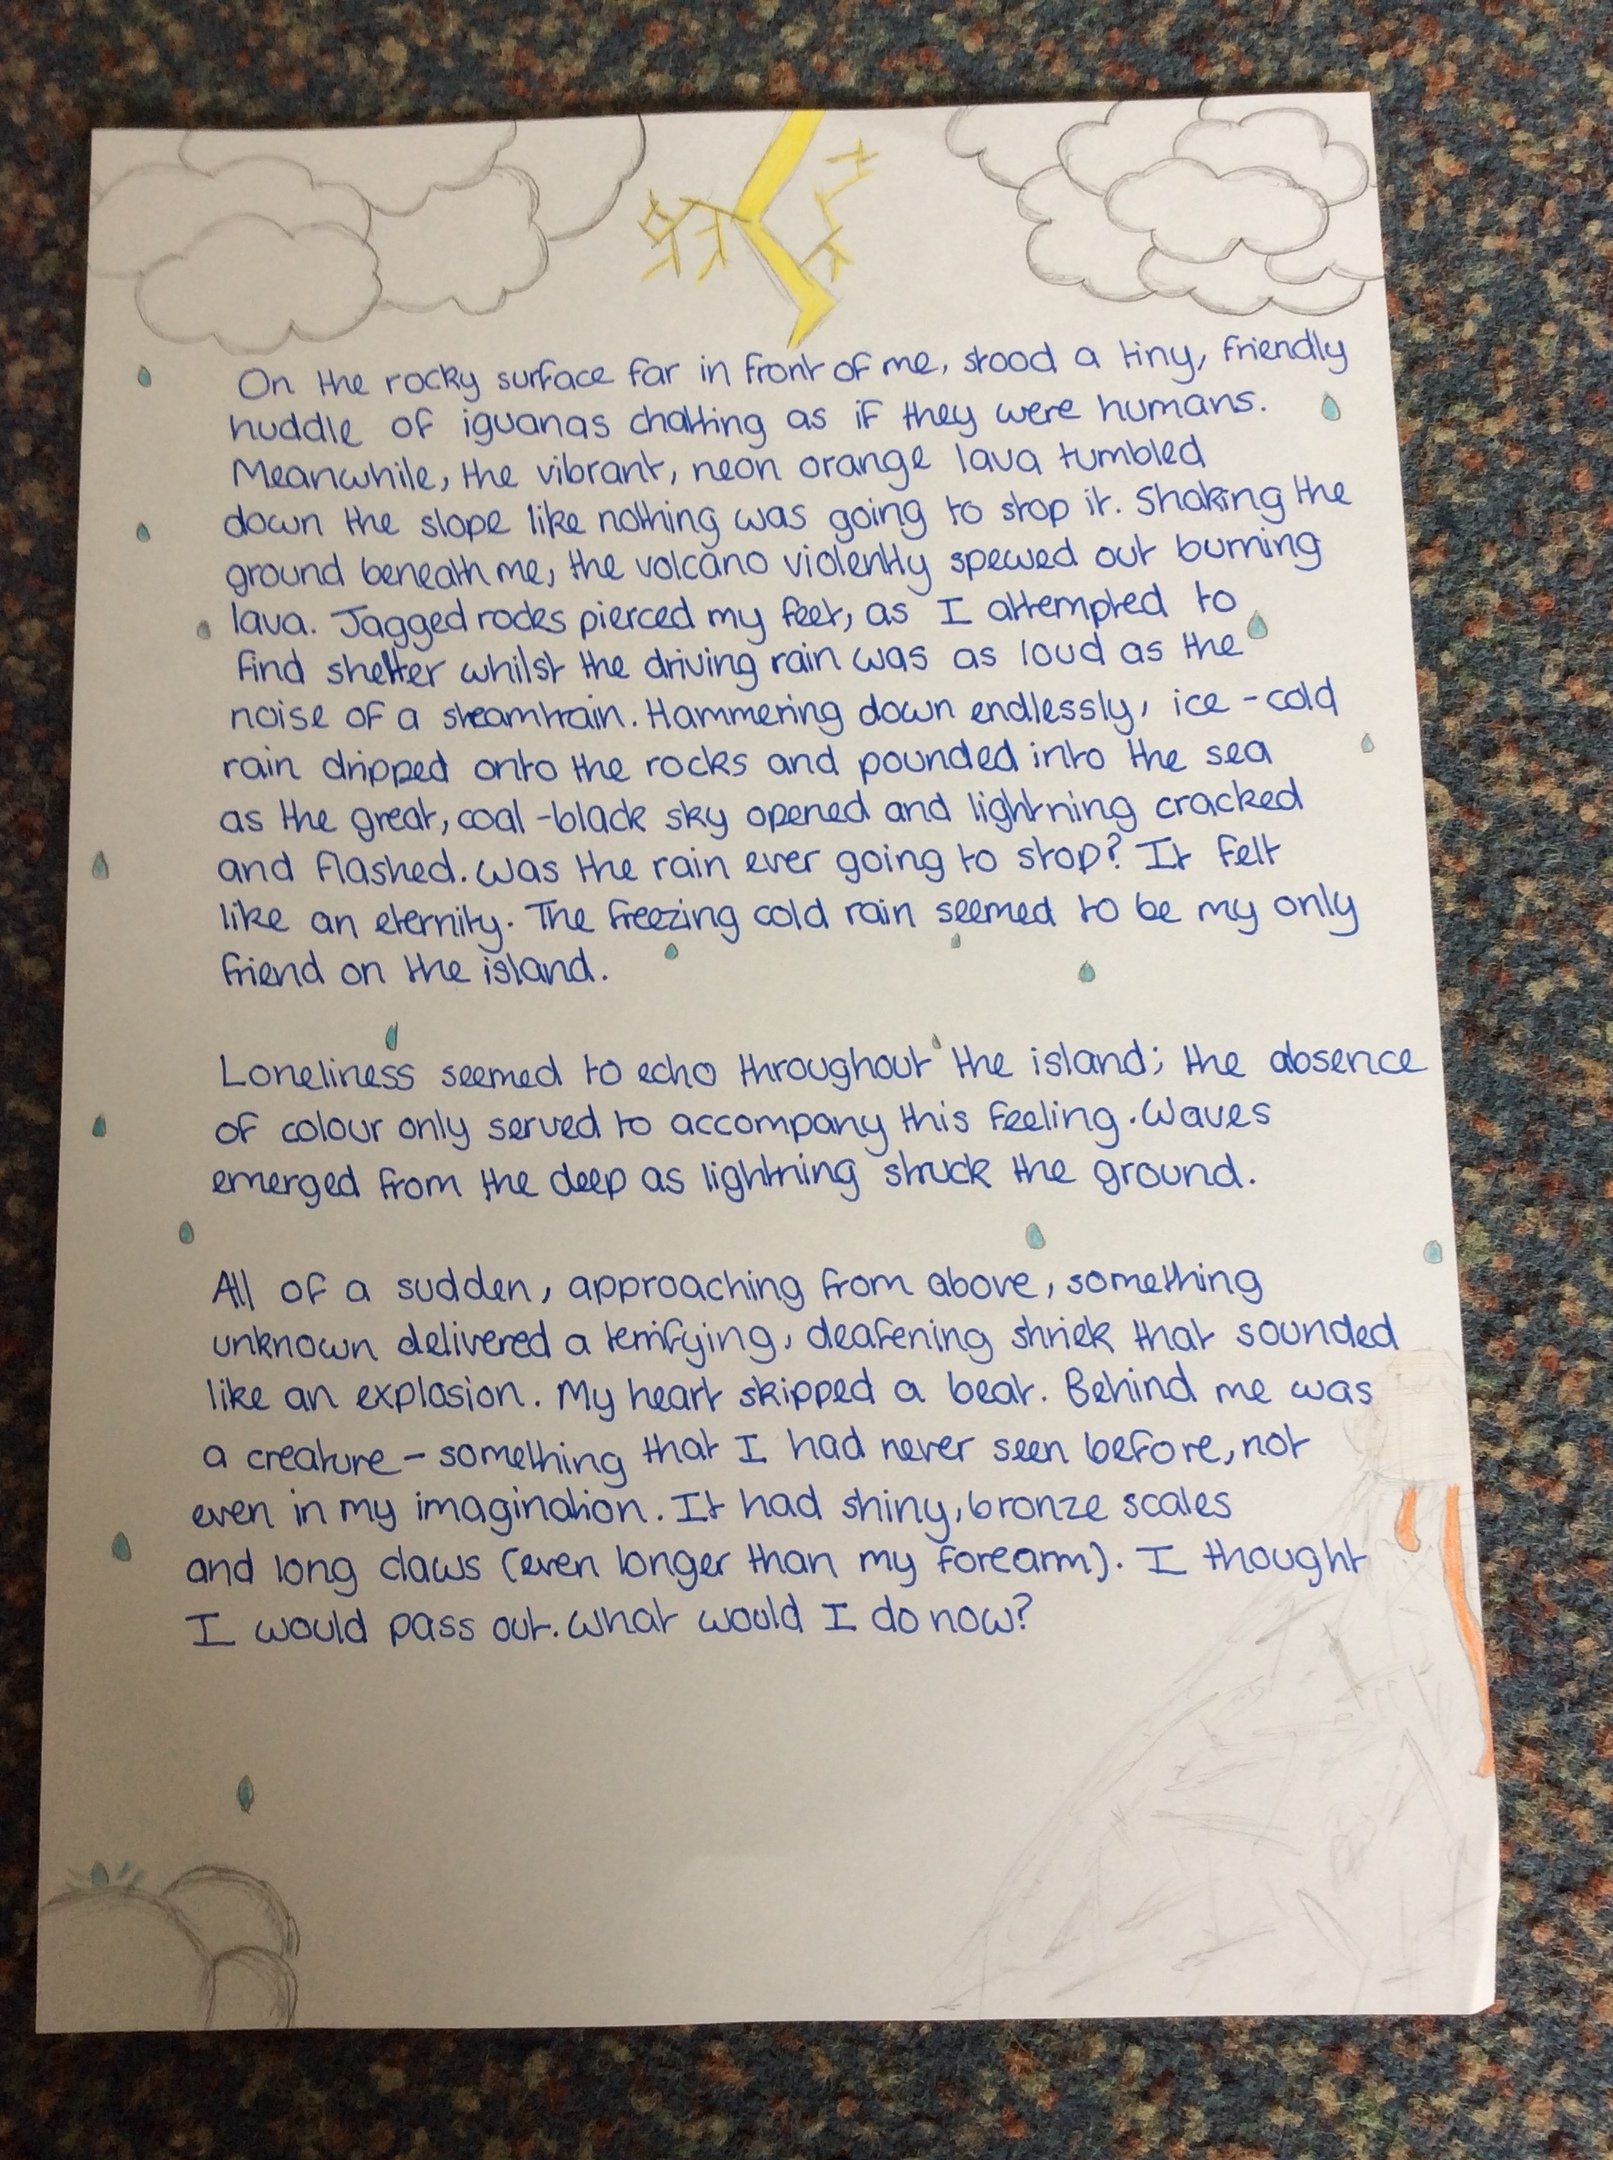 On the rocky surface far in front of me, stood a tiny, friendly
huddle of iguanas chatting as if they were humans.
Meanwhile, the vibrant, neon orange lava tumbled
down the slope like nothing was going to stop it. Shaking the
ground beneath me, the volcano violently spewed out burning
lava. Jagged rocks pierced my feet, as I attempted to
find shelter whilst the driving rain was as loud as the
noise of a steamtrain. Hammering down endlessly, ice-cold
rain dripped onto the rocks and pounded into the sea
as the great, coal-black sky opened and lightning cracked
and flashed. Was the rain ever going to stop? It felt
like an eternity. The freezing cold rain seemed to be my only
friend on the island.
Loneliness seemed to echo throughout the island; the absence
of colour only served to accompany this feeling. Waves
emerged from the deep as lightning struck the ground.
All of a sudden, approaching from above, something
unknown delivered a terrifying, deafening shriek that sounded
like an explosion. My heart skipped a beat. Behind me was
a creature - something that I had never seen before, not
even in my imagination. It had shiny, bronze scales
and long claws (even longer than my forearm). I thought
I would pass out. What would I do now?